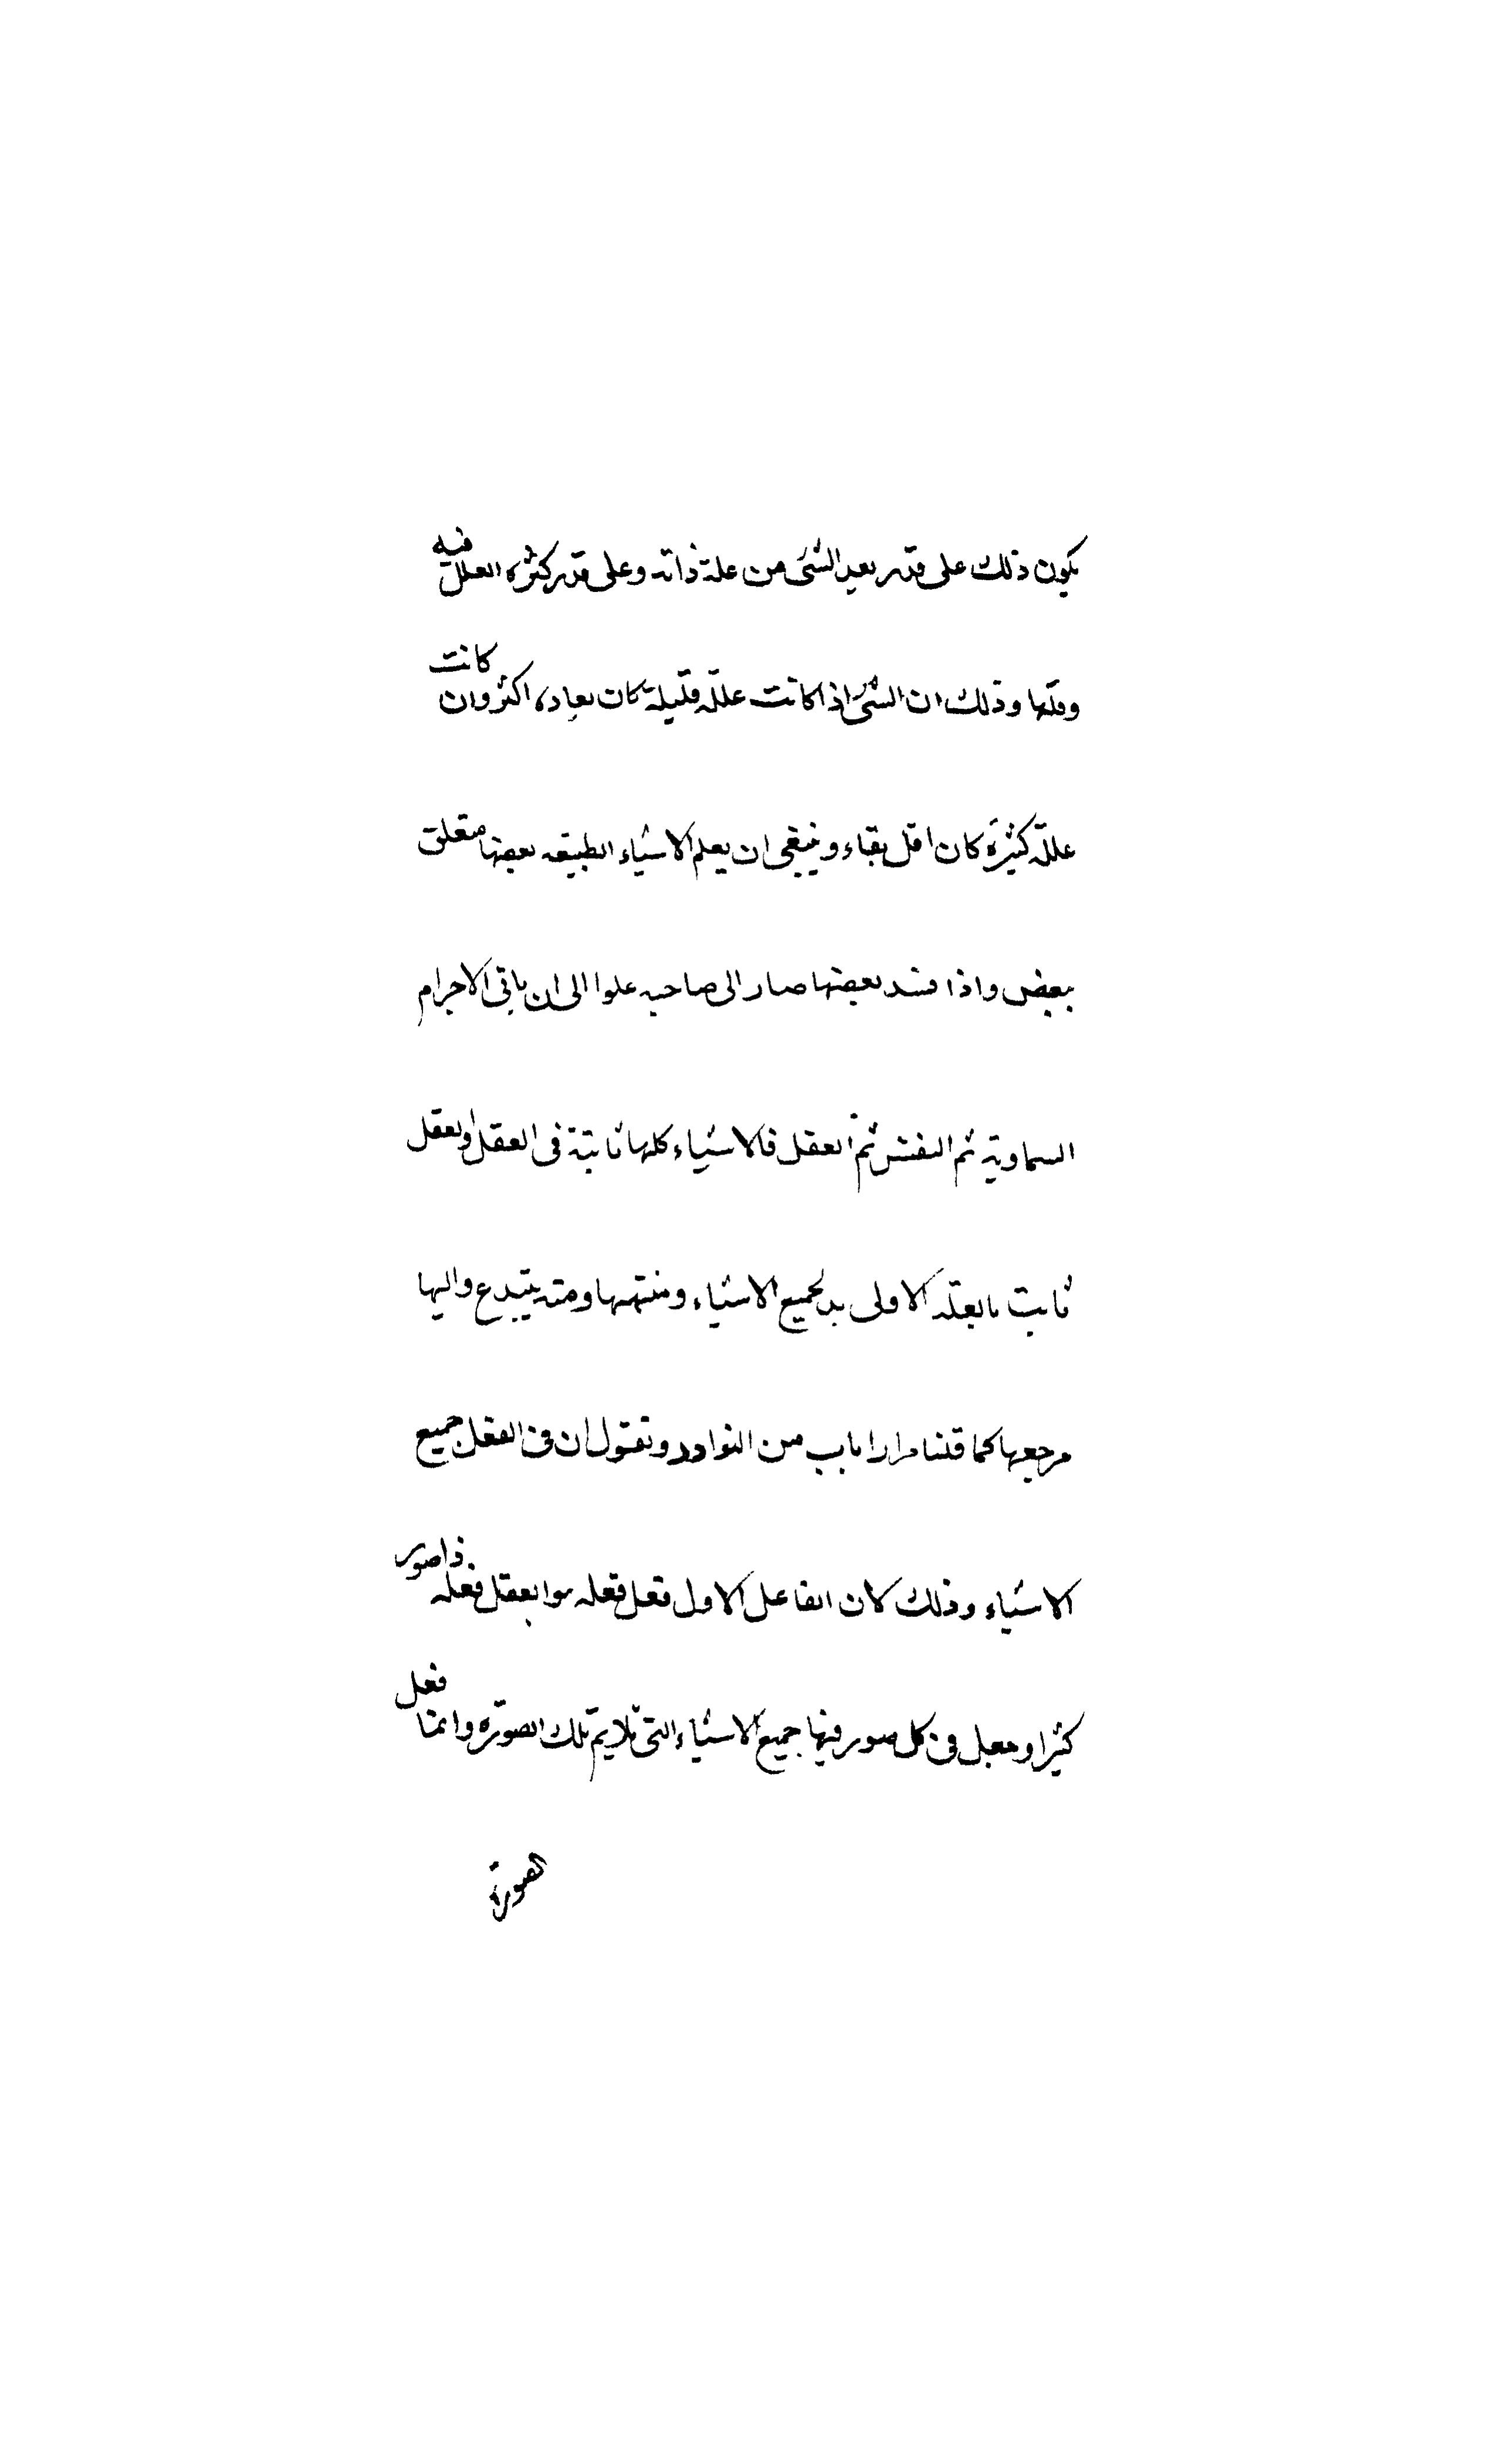 يكون ذلك على قدر بعد الشئ من علة ذاته وعلى قدر كثرة العلل فيه
وقلتها وذلك ان الشئ اذا كانت علله قليلة كان بعاده اكثر وان كانت
علله كثيرة كان اقل بقاء وينبغى ان يعلم الاشياء الطبيعه بعضها متعلق
ببعض واذا فسد بعضها صار الى صاحبه علوا الى ان ياتى الاجرام
السماوية ثم النفس ثم العقل فالاشياء كلها ثابتة فى العقل والعقل
ثابت بالعلة الاولى بدء لجميع الاشياء ومنتهها ومنه يبتدع واليها
مرجعها كما قلنا مرارا باب من النوادر ونقول ان فى العقل جميع
الاشياء وذلك لان الفاعل الاول فعل فعله هو العقل فعله ذا صور
كثيرا وجعل فى كل صور فيها جميع الاشياء التى تلايم تلك الصورة وانما فعل
الصورة